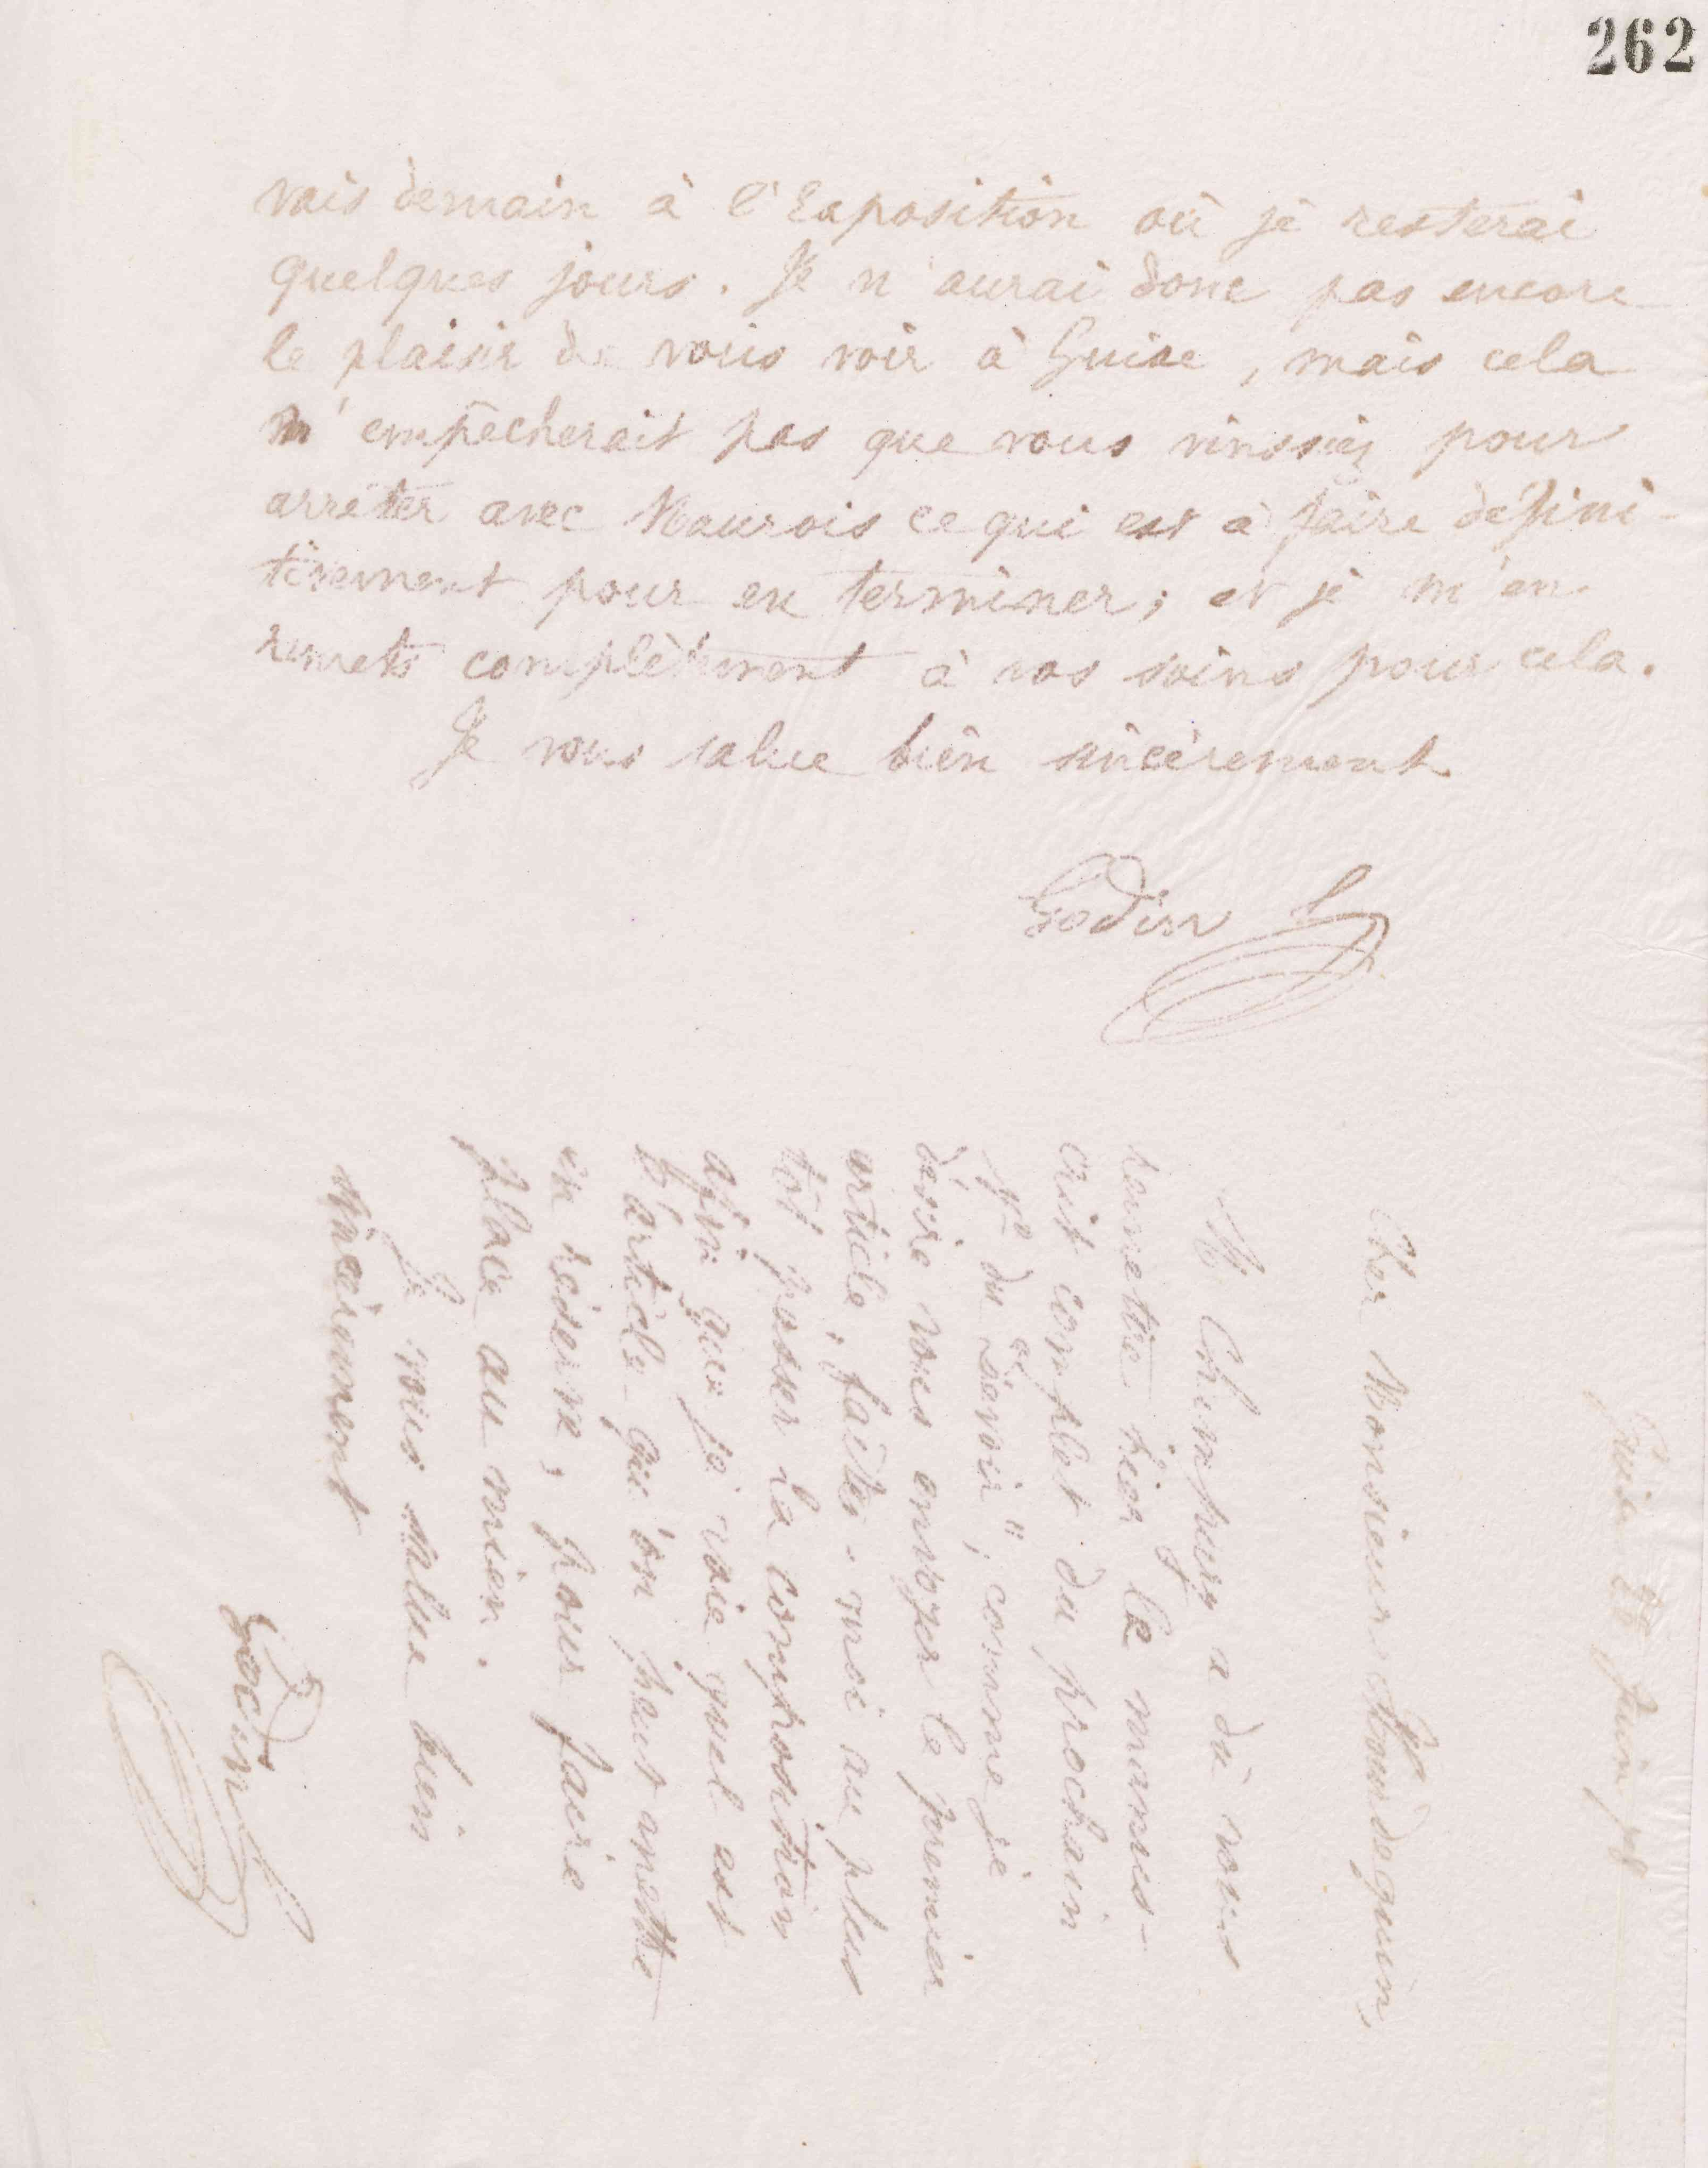 262
vais demain à l'Exposition où je resterai
quelques jours. Je n'aurai donc pas encore
le plaisir de vous voir à Guise, mais cela
n'empêcherait pas que vous vinssiez pour
arrêter avec Maurois ce qui est à faire défini-
tivement pour en terminer; et je m'en
remets complètement à vos soins pour cela.
Je vous salue bien sincèrement
Godin
Guise 28 Juin 78
Cher Monsieur Hourdequin,
M. Champury a dû vous
remettre hier le manus-
crit complet du prochain
No du "Devoir"; comme je
désire vous envoyer le premier
article, faites-moi au plus
tôt passer la composition
afin que je voie quel est
l'article qu'on peut mettre
en réserve, pour faire
place au mien.
Je vous salue bien
sincèrement
Godin